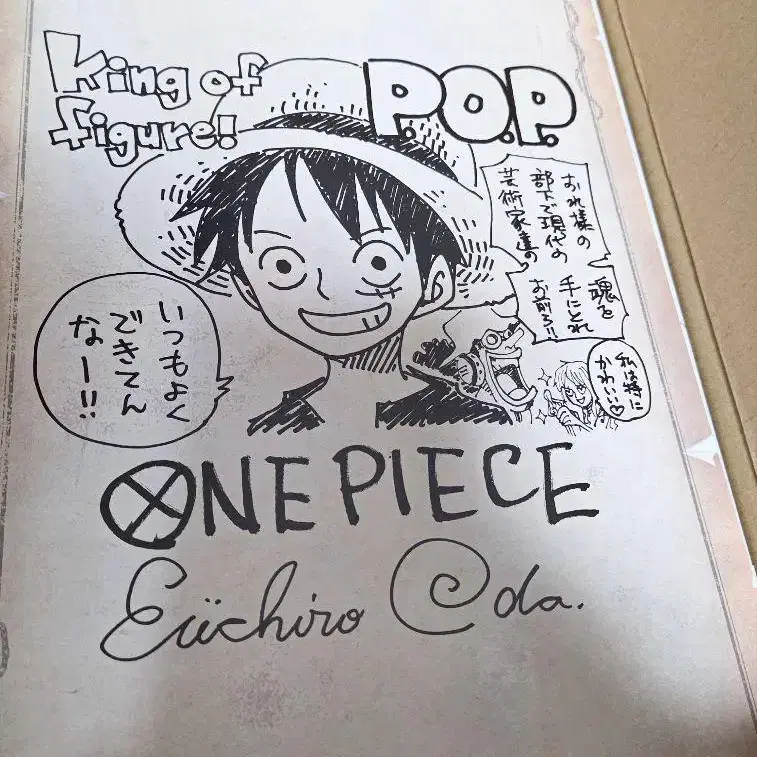 King of
figure!
P.O.P.
おれ様の
部下で現代の
芸術家達の
魂を
手にとれ
お前ら!!
いつもよく
できてん
なー!!
私は特に
かわいい♡
ONE PIECE
Eiichiro Oda.